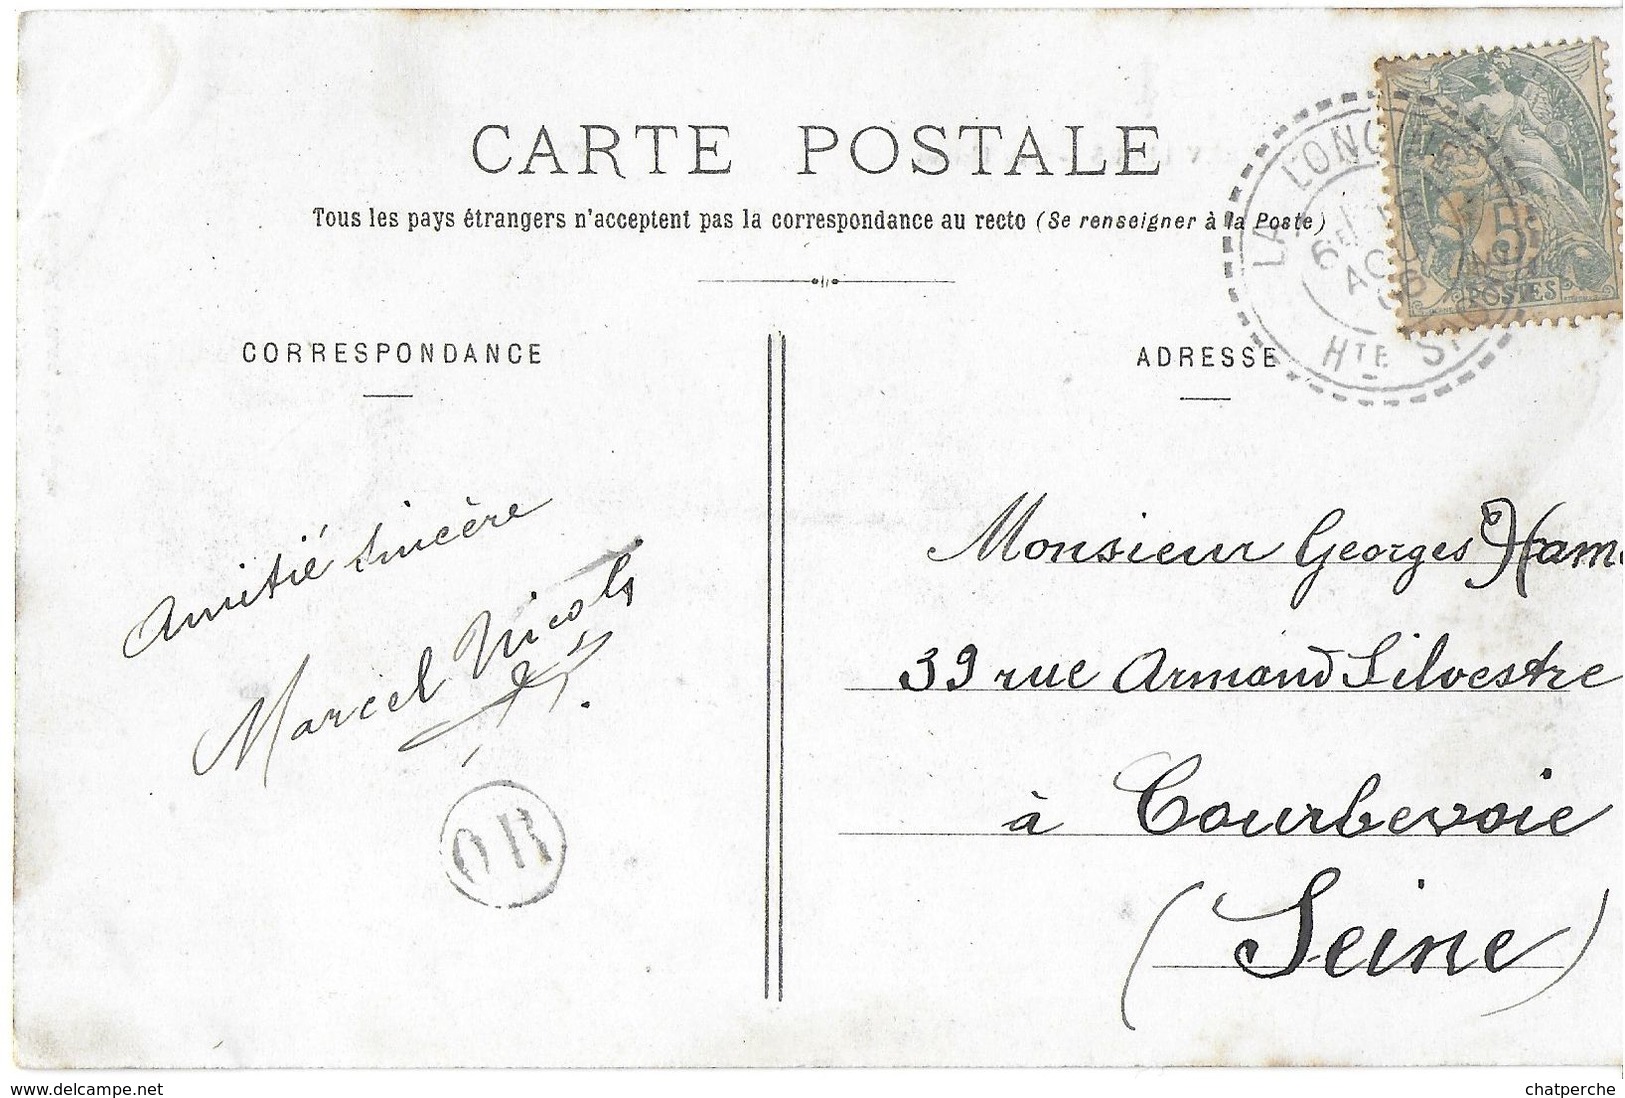 CARTE POSTALE
Tous les pays étrangers n'acceptent pas la correspondance au recto (Se renseigner à la Poste)
CORRESPONDANCE
ADRESSE
LA LONG
HTE
5
POSTES
Amitié sincère
Marcel Nicols
OR
Monsieur Georges Ham
39 rue Armand Silvestre
à Courbevoie
(Seine)
www.delcampe.net
chatperche